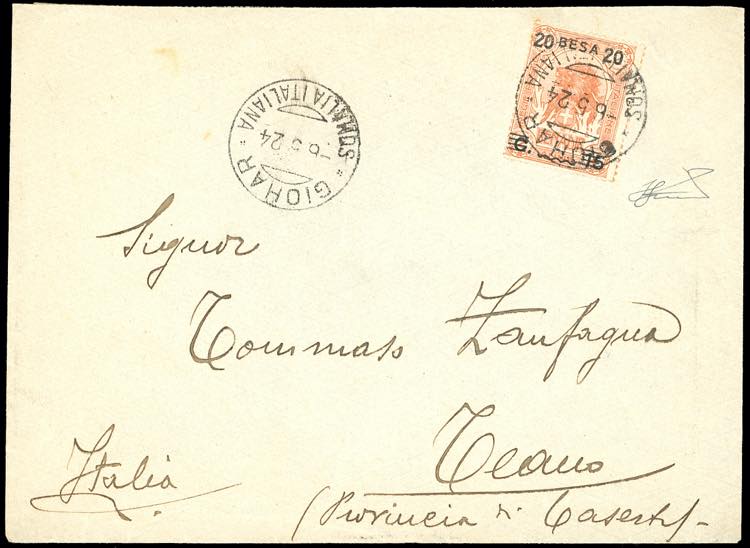 20 BESA 20
C. 15
SOMALIA ITALIANA
-6.5.24
" GIOHAR "
SOMALIA ITALIANA
-6.5.24
GIOHAR
Signor
Tommaso Zanfagna
Teano
Italia
(Provincia di Caserta)